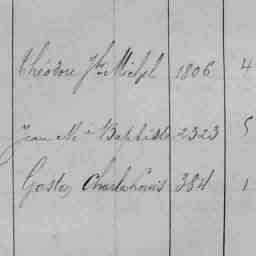 Théodore Jh Michel 1806 4
Jean M. Baptiste 2323 5
Gaston Charles Louis 384 1